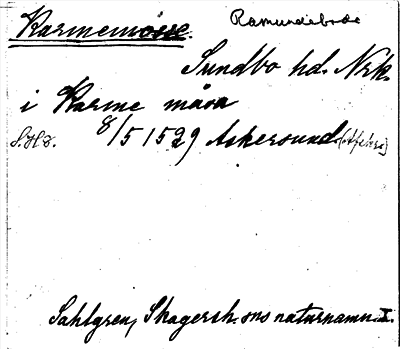 Karmemosse. Ramundeboda
Sundbo hd. Nrk.
i Karme måsa
S.H.H. 8/5 1529 Askersund
Sahlgren, Skagersh. sns naturnamn I.